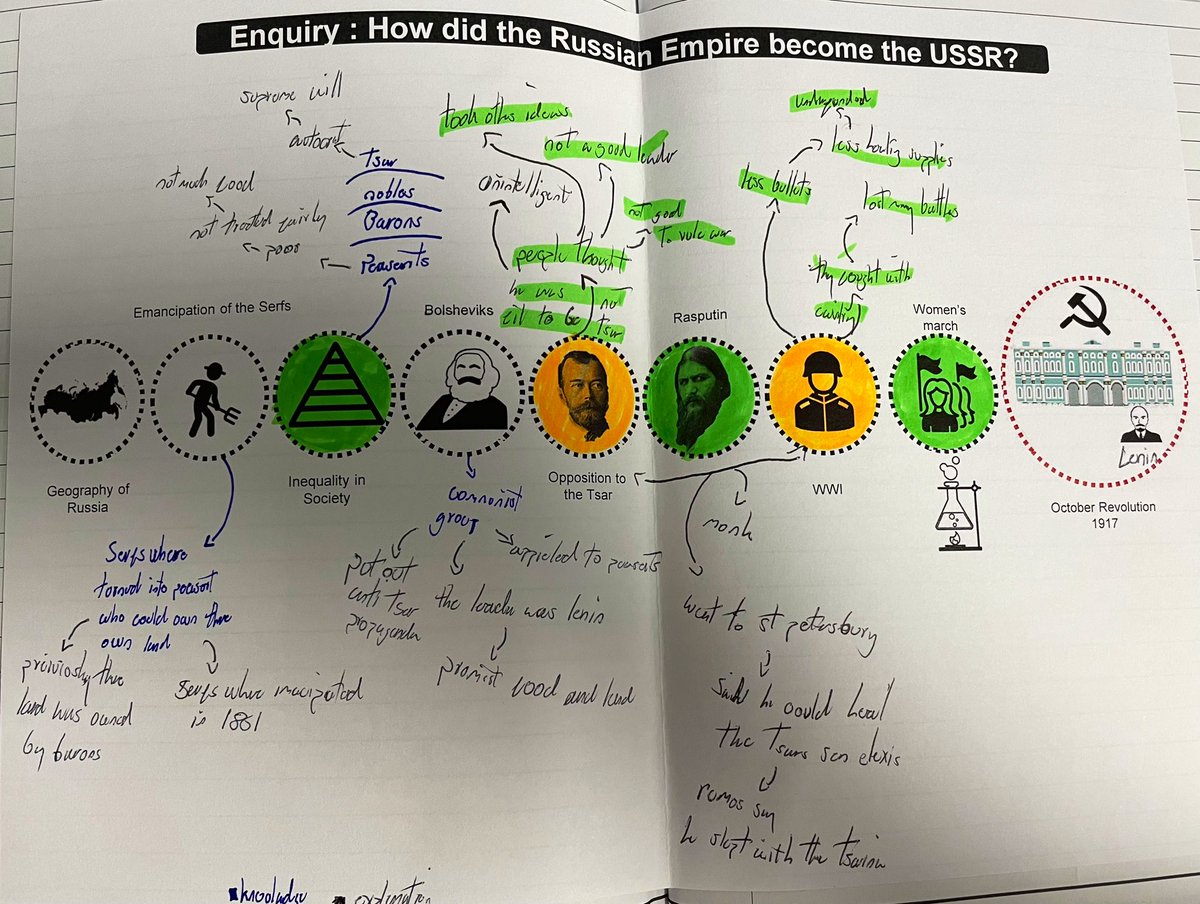 Enquiry : How did the Russian Empire become the USSR?
supreme will
autocrat
Tsar
nobles
Barons
Peasents
not much food
not treated fairly
poor
took others ideas
not a good leader
unintelligent
not good
to rule war
people thought
he was not
fit to be tsar
less bullets
less
supplies
lost many battles
they fought with
Emancipation of the Serfs
Bolsheviks
Rasputin
Women's
march
Geography of
Russia
Inequality in
Society
Opposition to
the Tsar
WWI
Lenin
October Revolution
1917
Serfs where
turned into peasant
who could own there
own land
previosly the
land was owned
by barons
Serfs where
in 1861
communist
group
put out
anti tsar
propaganda
the leader was lenin
to peasents
food and land
monk
went to st petersburg
said he could heal
the Tsars son elexis
rumos say
he slept with the tsarina